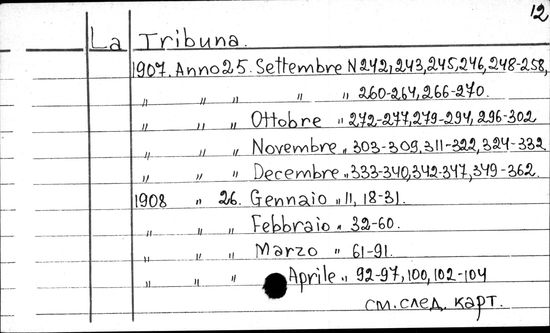 12
La Tribuna.
1907. Anno 25. Settembre N 242, 243, 245, 246, 248-258,
„ „ „ „ „ 260-264, 266-270.
„ „ „ Ottobre „ 272-277, 279-294, 296-302
„ „ „ Novembre „ 303-309, 311-322, 324-332
„ „ „ Decembre „ 333-340, 342-347, 349-362.
1908 „ 26. Gennaio „ 11, 18-31.
„ „ „ Febbraio „ 32-60.
„ „ „ Marzo „ 61-91.
„ „ „ Aprile „ 92-97, 100, 102-104
см. след. карт.